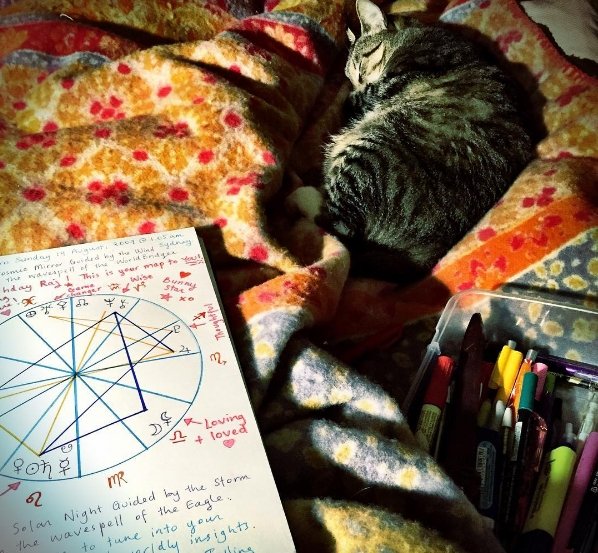 Sunday 19 August 2007 @ 1.05 am
Cosmic Mirror Guided by the Wind Sydney
the wavespell of the World Bridger
day Raj This is your map to You!
Game changer
Wise
Bunny Star
xo
Thoughtful
♏
Loving
♎ + loved
♌
♍
Solar Night Guided by the Storm
the wavespell of the Eagle.
to tune into your
worldly insights.